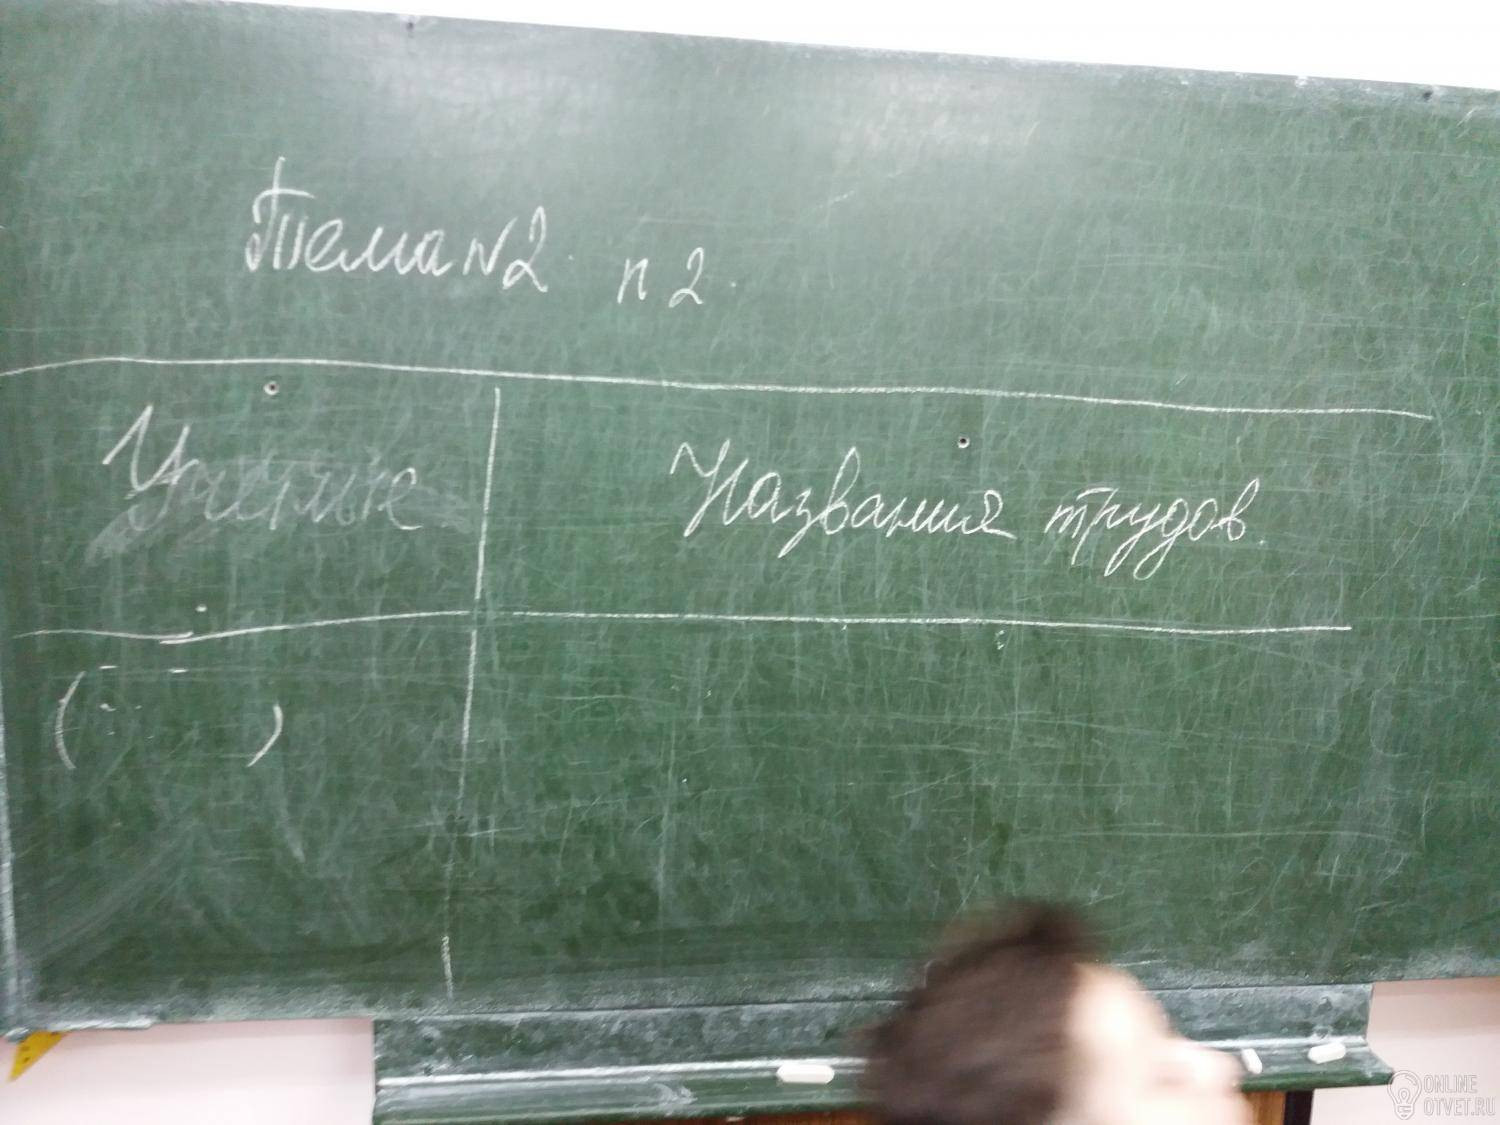 Тема N2. п 2.
Ученые
Названия трудов.
( )
ONLINE
OTVET.RU